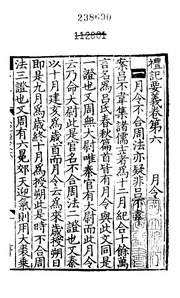 禮記要義卷第六
月令
一月令不合周法亦疑非呂不韋
案呂不韋集諸儒士著為十二月紀合十餘萬
言名為呂氏春秋篇首皆有月令與此文同是
一證也又周無大尉唯秦官有大尉而此月令
云乃命大尉此是官名不合周法二證也又秦
以十月建亥為歲首而月令云為來歲授朔日
即是九月為歲終十月為授朔此是時不合周
法三證也又周有六冕郊天迎氣則用大裘乘